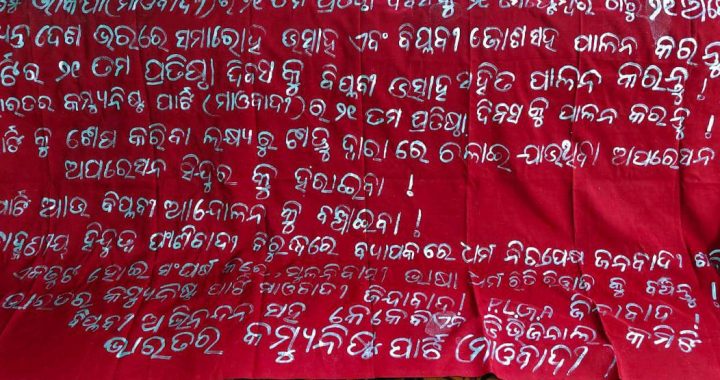 ସିପିଆଇ (ମାଓବାଦୀ) ର ୨୧ ତମ ପ୍ରତିଷ୍ଠା ଦିବସ କୁ ୨୧ ସେପ୍ଟେମ୍ବର ଠାରୁ ୨୧
ଦେଶ ଭରରେ ସମାରୋହ ଉତ୍ସାହ ଏବଂ ବିପ୍ଳବୀ ଜୋଶ ସହ ପାଳନ କରନ୍ତୁ
ର ୨୧ ତମ ପ୍ରତିଷ୍ଠା ଦିବସ କୁ ବିପ୍ଳବୀ ଉତ୍ସାହ ସହିତ ପାଳନ କରିନ୍ତୁ !
ଭାରତର କମ୍ୟୁନିଷ୍ଟ ପାର୍ଟି (ମାଓବାଦୀ) ର ୨୧ ତମ ପ୍ରତିଷ୍ଠା ଦିବସ କୁ ପାଳନ କରନ୍ତୁ !
କୁ ଶେଷ କରିବା ଲକ୍ଷ୍ୟରୁ ଶତ୍ରୁ ଦ୍ୱାରା ରେ ଚଳାଇ ଯାଉଥିବା ଅପରେସନ
ଅପରେସନ ସିନ୍ଦୁର କୁ ହରାଇବା !
ପାର୍ଟି ଆଉ ବିପ୍ଳବୀ ଆନ୍ଦୋଳନ କୁ ବଞ୍ଚାଇବା !
ହିନ୍ଦୁତ୍ୱ ଫାଶିବାଦୀ ବିରୁଦ୍ଧରେ ବ୍ୟାପକ ରେ ଧର୍ମ ନିରପେକ୍ଷ ଜନବାଦୀ
ଏକଜୁଟ ହୋଇ ସଂଘର୍ଷ ମୂଳନିବାସୀ ଭାଷା ଧର୍ମ ରୀତି ରିବାଜ କୁ ବଞ୍ଚାନ୍ତୁ !
ଭାରତର କମ୍ୟୁନିଷ୍ଟ ପାର୍ଟି ମାଓବାଦୀ ଜିନ୍ଦାବାଦ ! P.L.G.A ଜିନ୍ଦାବାଦ !
ବିପ୍ଳବୀ ଅଭିନନ୍ଦନ ସହ କେକେବିଏନ ଡିଭିଜନାଲ କମିଟି
ଭାରତର କମ୍ୟୁନିଷ୍ଟ ପାର୍ଟି (ମାଓବାଦୀ)